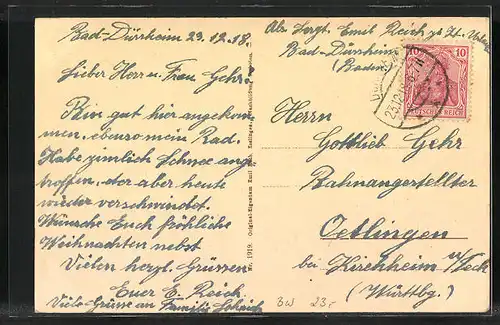 Bad-Dürrheim 23.12.18.
Lieber Herr u. Frau Gehr!
Bin gut hier angekom
men, ebenso mein Rad.
Habe ziemlich Schnee ange
troffen, der aber heute
wieder verschwindet.
Wünsche Euch fröhliche
Weihnachten nebst
Vielen herzl. Grüssen
Euer E. Reich.
Viele Grüsse an Familie
Nr. 1919. Original-Eigentum Emil
Abs. Emil Reich zb Zt.
Bad-Dürrheim
(Baden)
10
10
DEUTSCHES REICH
Herrn
Gottlieb Gehr
Bahnangestellter
Oetlingen
bei Kirchheim u/Teck
(Württbg.)
BW 23,-